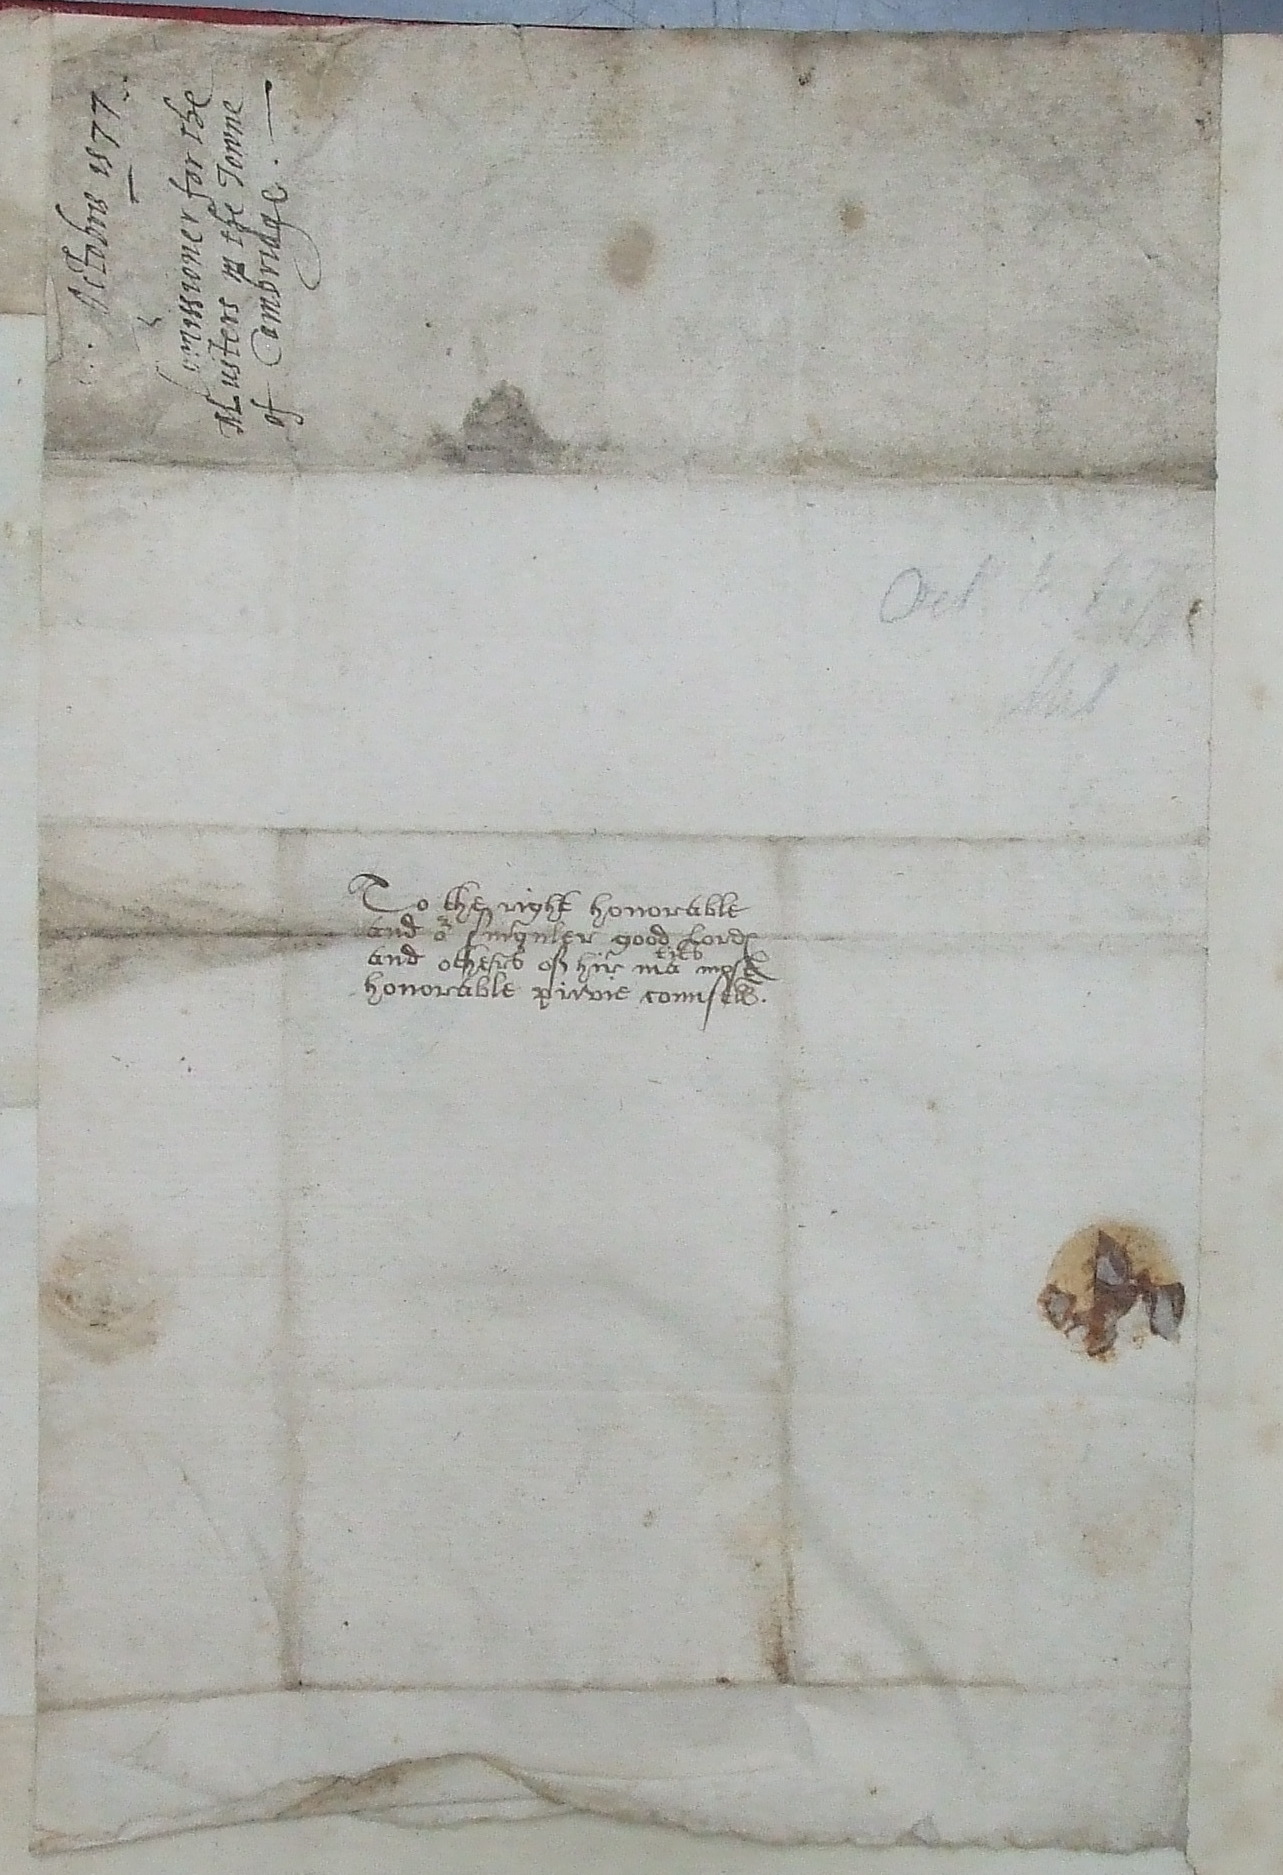 Octobris 1577
Comissioner for the
Musters in the Towne
of Cambridge.
Oct
To the right honorable
and or singuler good Lordes
and others of hir maties most
honorable privie counsell.